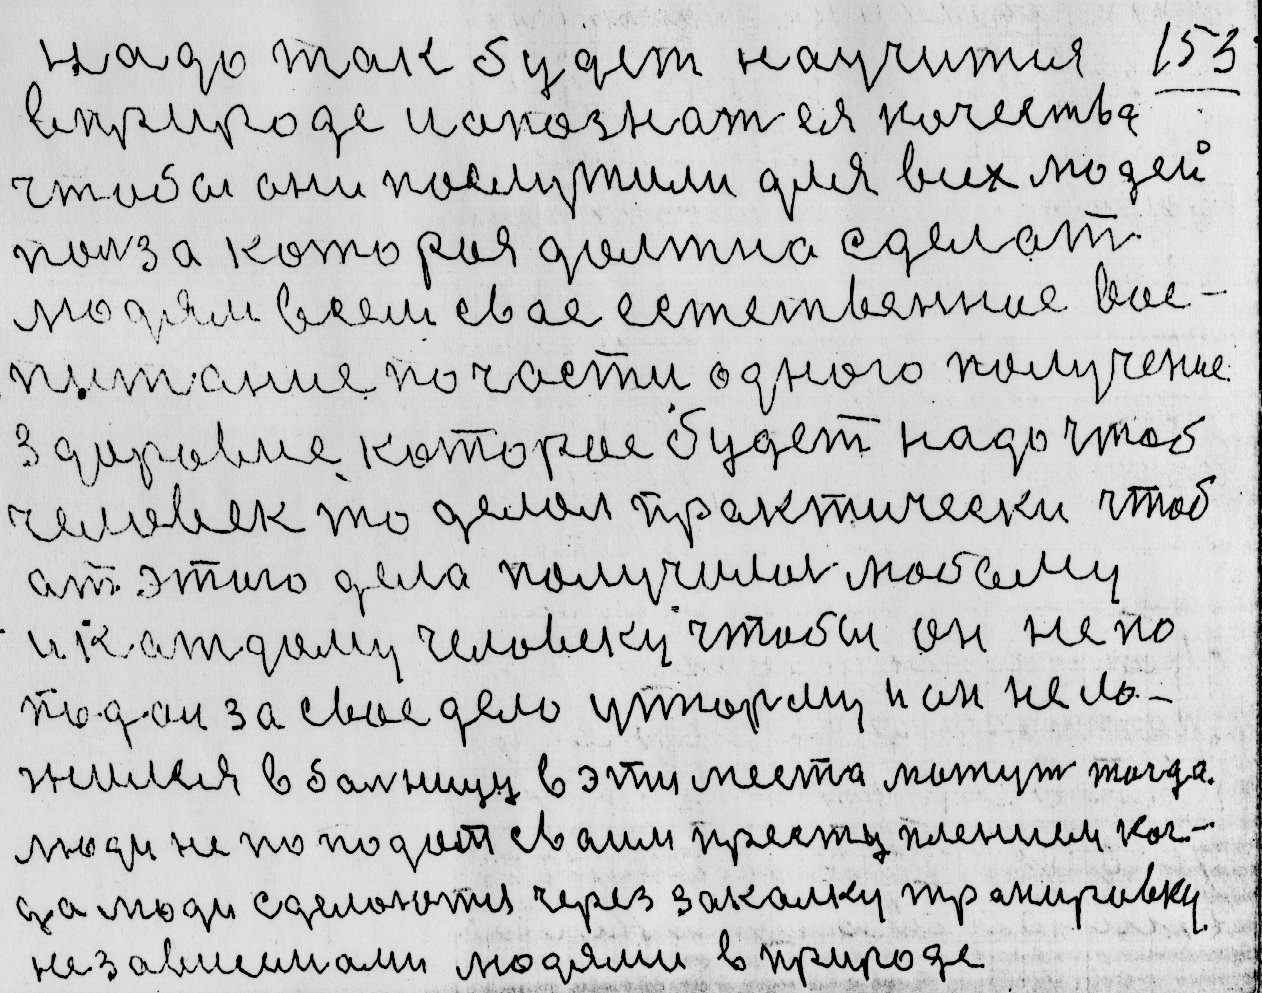 надо так будет научится 153
вприроде иопознат ея качества
чтобы они послужили для всех людей
полза которая должна сделат
людям всем свае естественние вос-
питание по части одного получение
здаровие которае будет надо чтоб
человек то делал практически чтоб
ат этого дела получилос любому
и каждому человеку чтобы он не по
подал за свае дело утюрму и он не ло-
жился в болницу в эти места могут тогда
люди не поподат сваим преступлением ког-
да люди сделаются через закалку транировку
независимами людями в природе